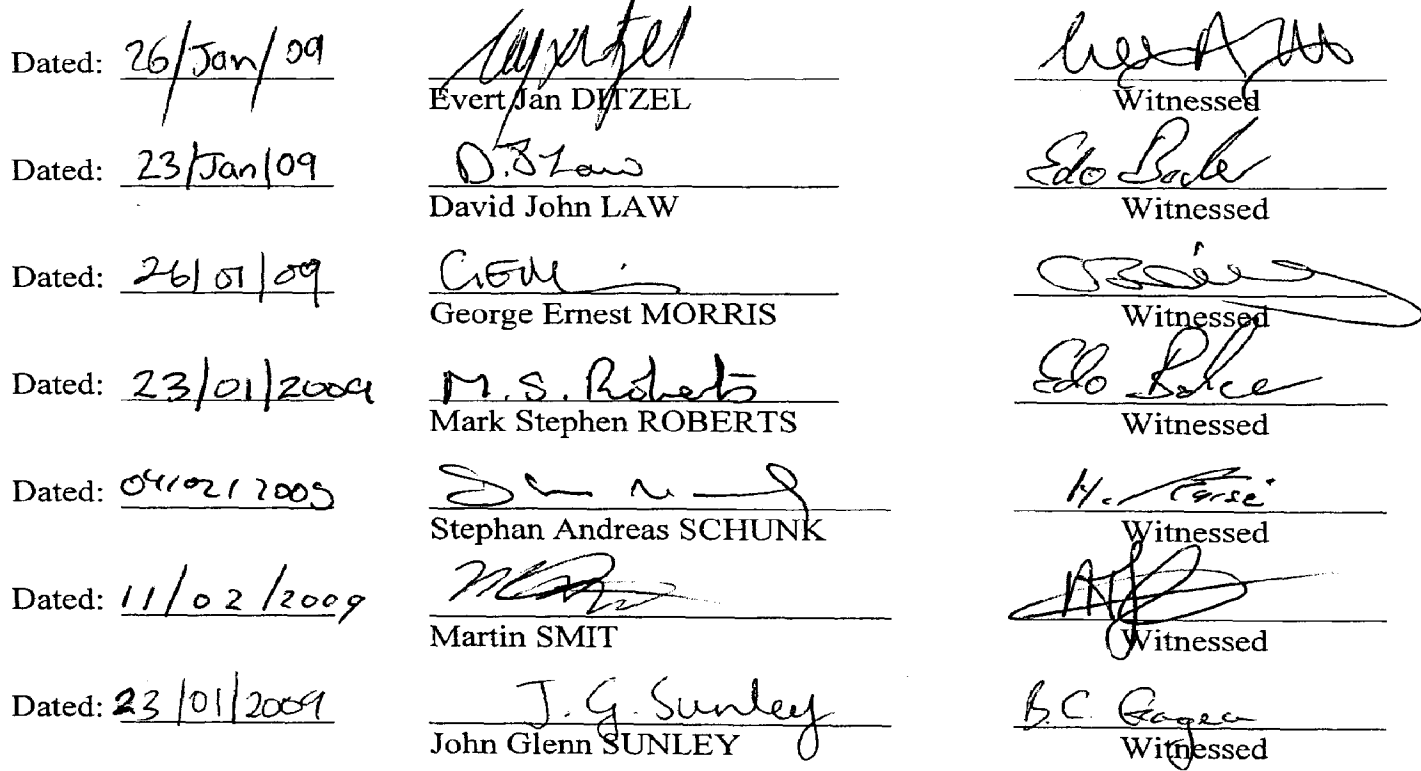 Dated: 26/Jan/09
Evert Jan DITZEL Witnessed
Dated: 23/Jan/09 D.J Law Edo
David John LAW Witnessed
Dated: 26/01/09 GEM
George Ernest MORRIS Witnessed
Dated: 23/01/2009 M.S. Roberts Edo
Mark Stephen ROBERTS Witnessed
Dated: 04/02/2009 H.
Stephan Andreas SCHUNK Witnessed
Dated: 11/02/2009
Martin SMIT Witnessed
Dated: 23/01/2009 J. G. Sunley B.C.
John Glenn SUNLEY Witnessed